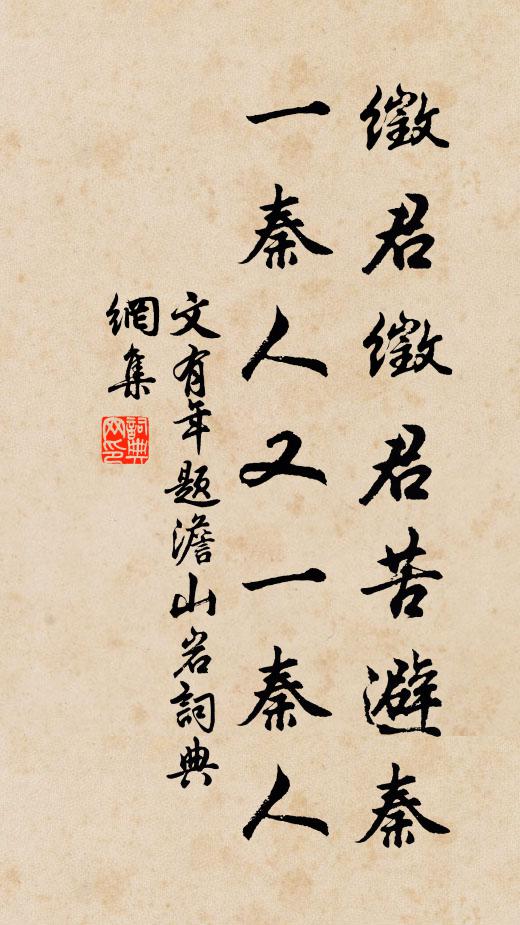 徵君徵君苦避秦
一秦人又一秦人
文有年題澹山岩詞典
網集
詞典網印